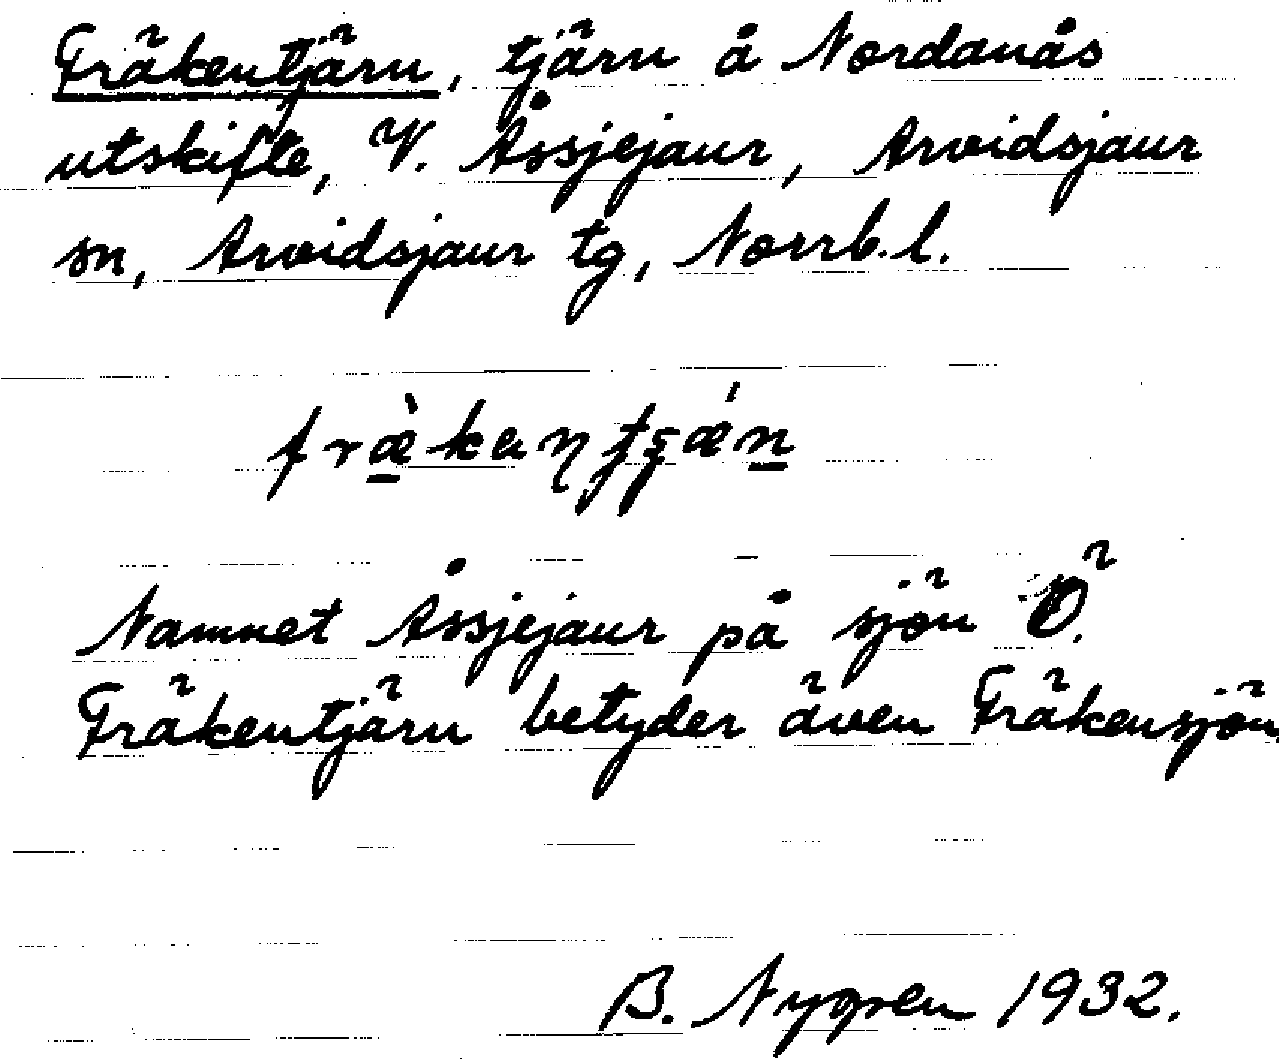 Fräkentjärn, tjärn å Nordanås
utskifte, V. Åssjejaur, Arvidsjaur
sn, Arvidsjaur tg, Norrb.l.
Namnet Åssjejaur på sjön Ö.
Fräkentjärn betyder även Fräkensjön.
B. Nygren 1932.